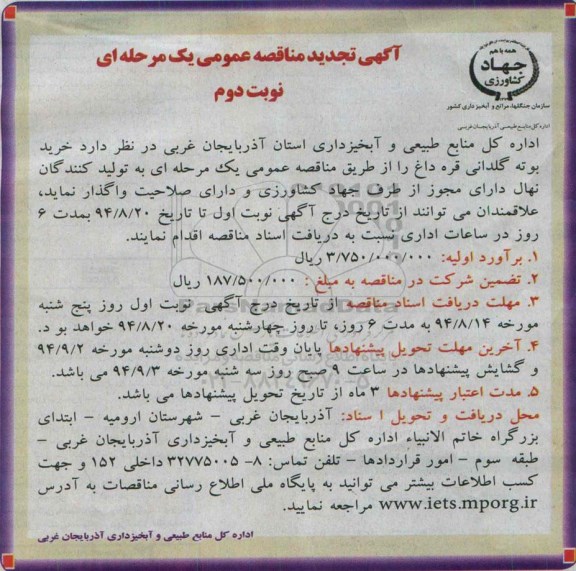 آگهی تجدید مناقصه عمومی یک مرحله ای
نوبت دوم
همه با هم
جهاد
کشاورزی
سازمان جنگلها، مراتع و آبخیزداری کشور
اداره کل منابع طبیعی آذربایجان غربی
اداره کل منابع طبیعی و آبخیزداری استان آذربایجان غربی در نظر دارد خرید
بوته گلدانی قره داغ را از طریق مناقصه عمومی یک مرحله ای به تولید کنندگان
نهال دارای مجوز از طرف جهاد کشاورزی و دارای صلاحیت واگذار نماید،
علاقمندان می توانند از تاریخ درج آگهی نوبت اول تا تاریخ ۹۴/۸/۲۰ بمدت ۶
روز در ساعات اداری نسبت به دریافت اسناد مناقصه اقدام نمایند.
۱. برآورد اولیه: ۳/۷۵۰/۰۰۰/۰۰۰ ریال
۲. تضمین شرکت در مناقصه به مبلغ : ۱۸۷/۵۰۰/۰۰۰ ریال
۳. مهلت دریافت اسناد مناقصه از تاریخ درج آگهی نوبت اول روز پنج شنبه
مورخه ۹۴/۸/۱۴ به مدت ۶ روز، تا روز چهارشنبه مورخه ۹۴/۸/۲۰ خواهد بو د.
۴. آخرین مهلت تحویل پیشنهادها پایان وقت اداری روز دوشنبه مورخه ۹۴/۹/۲
و گشایش پیشنهادها در ساعت ۹ صبح روز سه شنبه مورخه ۹۴/۹/۳ می باشد.
۵. مدت اعتبار پیشنهادها ۳ ماه از تاریخ تحویل پیشنهادها می باشد.
محل دریافت و تحویل ا سناد: آذربایجان غربی – شهرستان ارومیه – ابتدای
بزرگراه خاتم الانبیاء اداره کل منابع طبیعی و آبخیزداری آذربایجان غربی –
طبقه سوم – امور قراردادها – تلفن تماس: ۸- ۳۲۷۷۵۰۰۵ داخلی ۱۵۲ و جهت
کسب اطلاعات بیشتر می توانید به پایگاه ملی اطلاع رسانی مناقصات به آدرس
www.iets.mporg.ir مراجعه نمایید.
اداره کل منابع طبیعی و آبخیزداری آذربایجان غربی